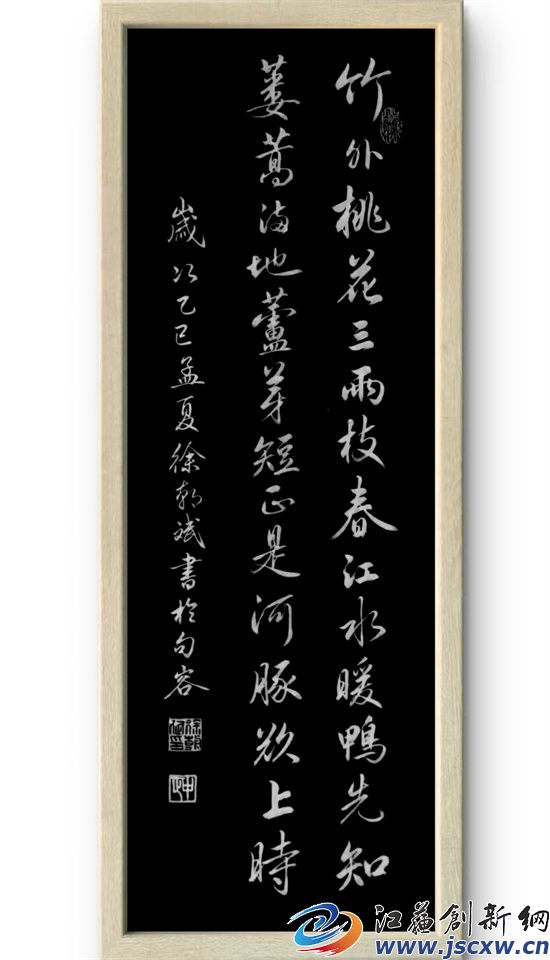 竹外桃花三兩枝春江水暖鴨先知
蒌蒿满地蘆芽短正是河豚欲上時
歲次乙巳孟夏徐朝斌書於句容
江蘇創新網
www.jscxw.cn